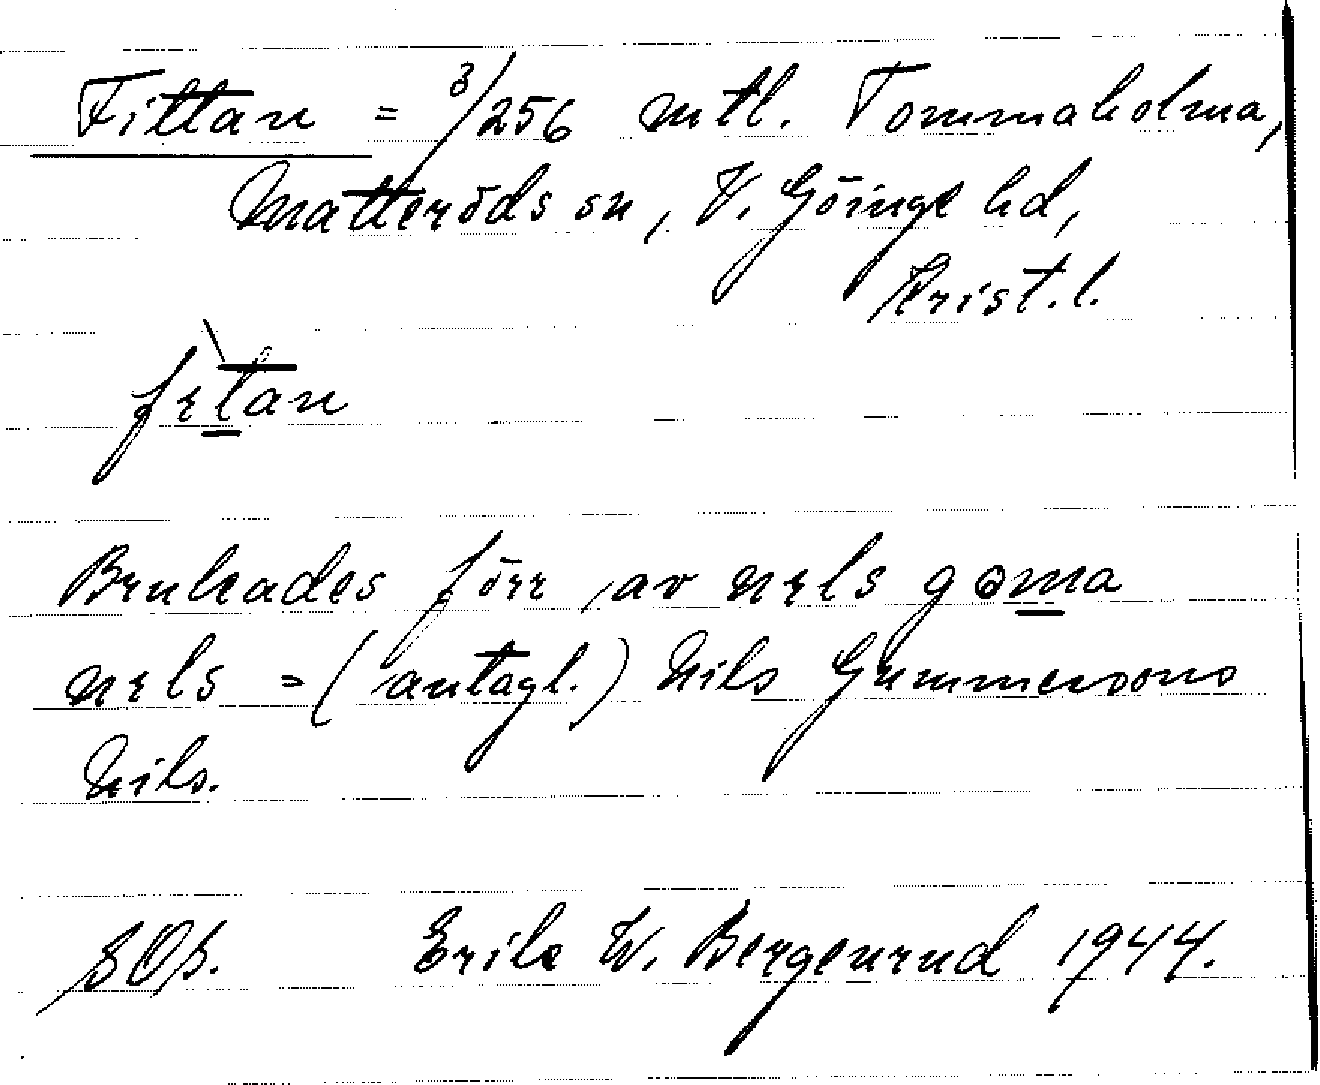 Fittan = 3/256 mtl. Tommaholma,
Matteröds sn, V. Göinge hd,
Krist. l.
fɩtan
Brukades förr, av nɩls gɵma
nɩls = (antagl.) Nils Gummesons
Nils.
Erik W. Bergenrud 1944.